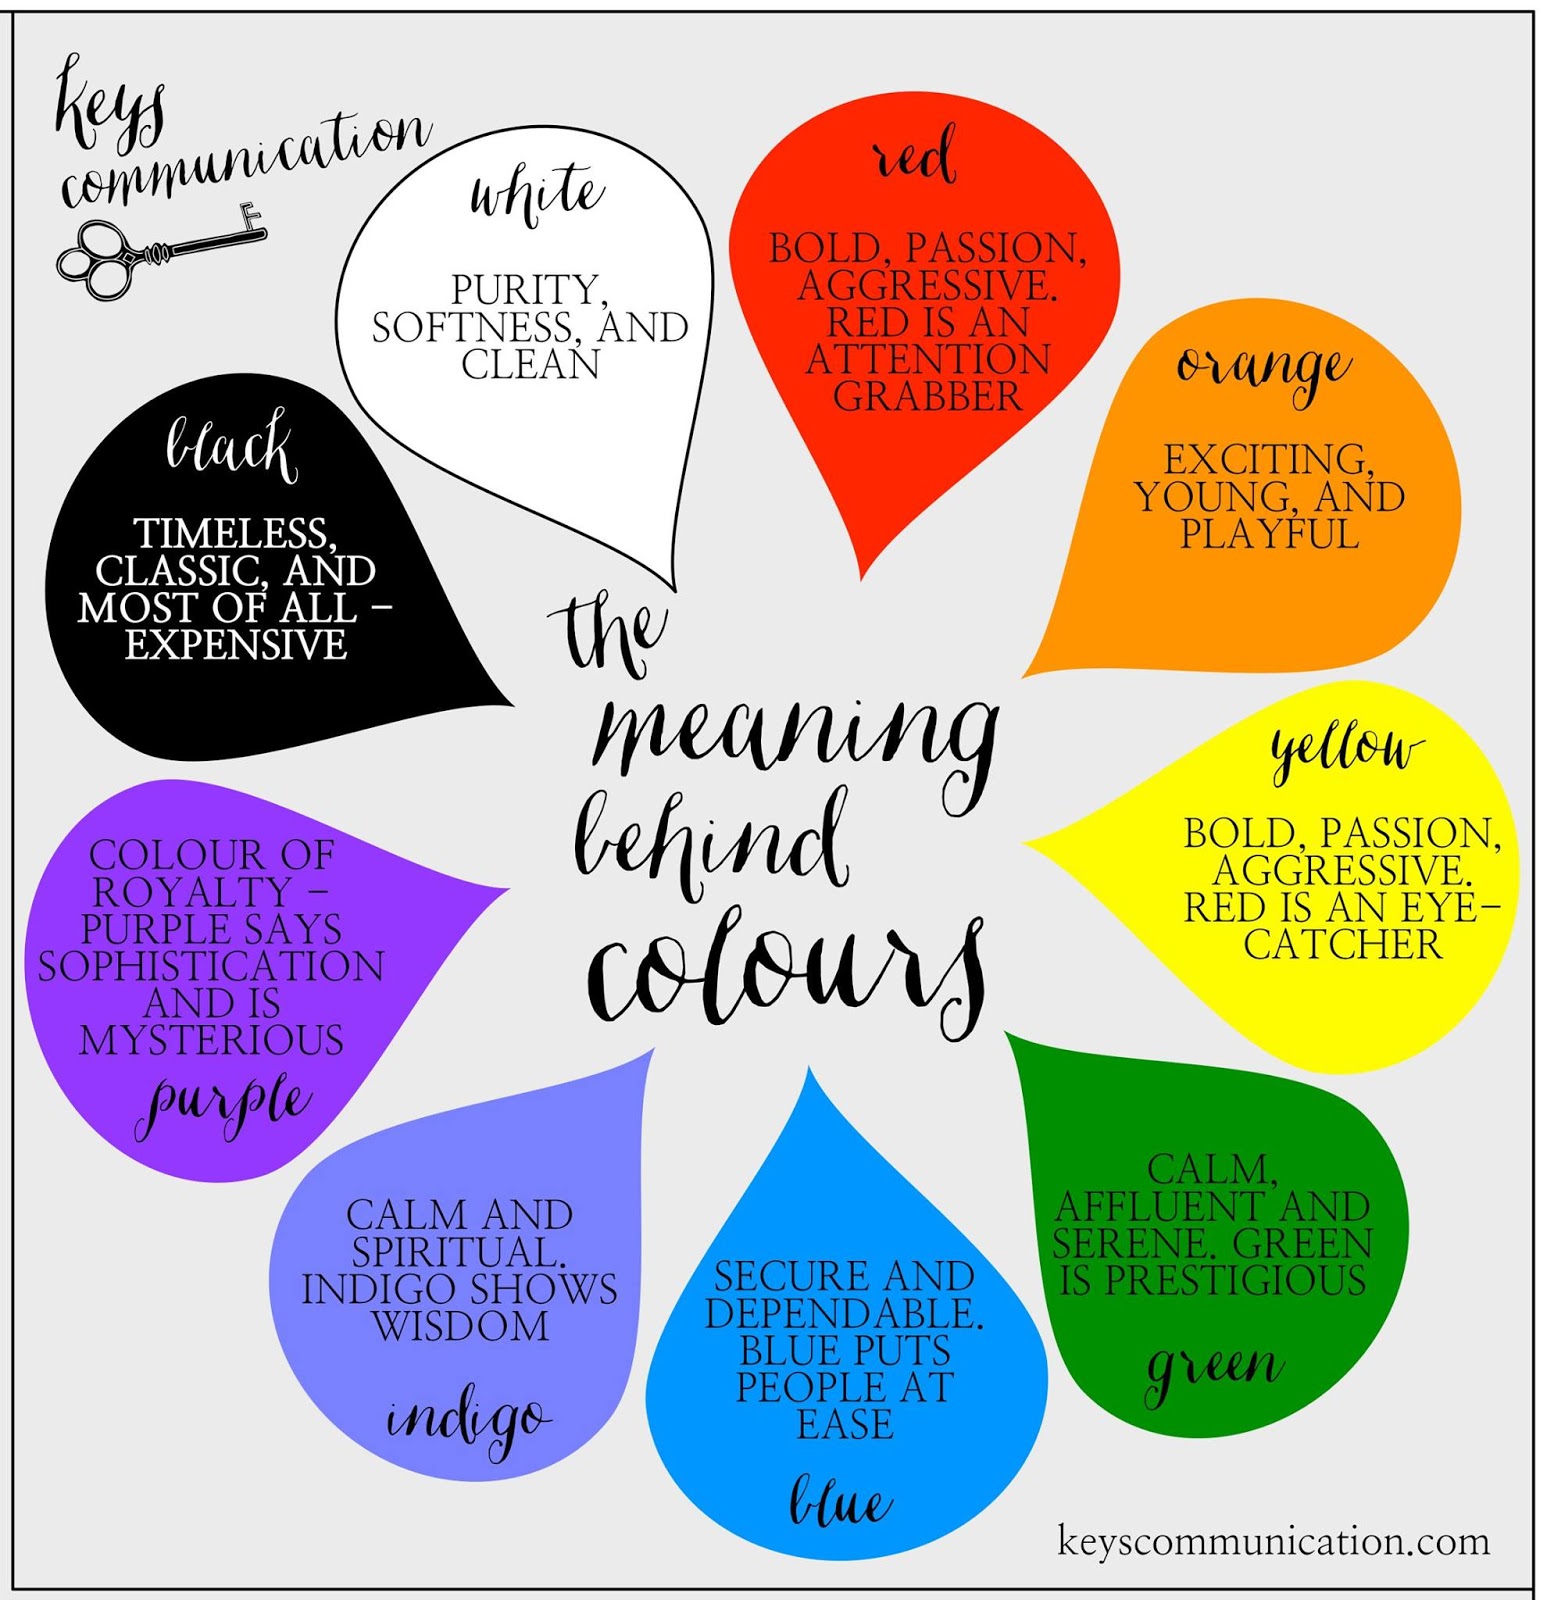 keys
communication
white
PURITY,
SOFTNESS, AND
CLEAN
red
BOLD, PASSION,
AGGRESSIVE.
RED IS AN
ATTENTION
GRABBER
orange
EXCITING,
YOUNG, AND
PLAYFUL
black
TIMELESS,
CLASSIC, AND
MOST OF ALL –
EXPENSIVE
the
meaning
behind
colours
yellow
BOLD, PASSION,
AGGRESSIVE.
RED IS AN EYE-
CATCHER
COLOUR OF
ROYALTY –
PURPLE SAYS
SOPHISTICATION
AND IS
MYSTERIOUS
purple
CALM AND
SPIRITUAL.
INDIGO SHOWS
WISDOM
indigo
SECURE AND
DEPENDABLE.
BLUE PUTS
PEOPLE AT
EASE
blue
CALM,
AFFLUENT AND
SERENE. GREEN
IS PRESTIGIOUS
green
keyscommunication.com